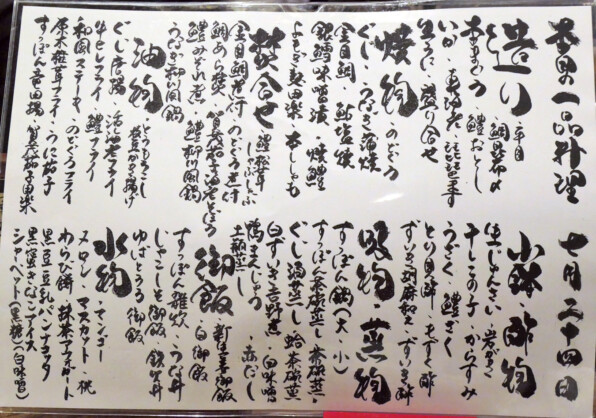 本日の一品料理 七月二十四日
造り
平目
鯛昆布〆
本まぐろ
鱧おとし
いか
生うに
盛り合せ
焼物
のどぐろ
ぐじ
うなぎ蒲焼
金目鯛
鮎塩焼
銀鱈味噌漬
焼鱧
よもぎ麩田楽
本ししゃも
焚合せ
鱧松茸しゃぶしゃぶ
金目鯛煮付
のどぐろ煮付
鯛あら焚
賀茂茄子海老そぼろ
鱧みぞれ煮
鱧柳川風鍋
うなぎ柳川風鍋
油物
とうもろこし
ぐじ唐揚
活〆海老フライ
牛ヒレフライ
鱧フライ
和風ステーキ
のどぐろフライ
原木椎茸フライ
すっぽん唐揚
賀茂茄子田楽
小鉢 酢物
生じゅんさい
岩がき
干しこの子
からすみ
うざく
鱧ざく
とり貝酢
もずく酢
ずいき胡麻和え
ずいき酢
吸物・蒸物
すっぽん鍋(大・小)
すっぽん茶碗蒸し
ぐじ酒蒸し
蛤茶碗蒸
白ずいき吉野煮
白味噌
鴨まんじゅう
赤だし
土瓶蒸し
御飯
新生姜御飯
白御飯
すっぽん雑炊
うな丼
じゃこ玉御飯
鉄火丼
ゆばとろろ御飯
水物
マンゴー
メロン
マスカット
桃
わらび餅
黒豆豆乳パンナコッタ
黒蜜きなこアイス
シャーベット(黒糖)(白味噌)